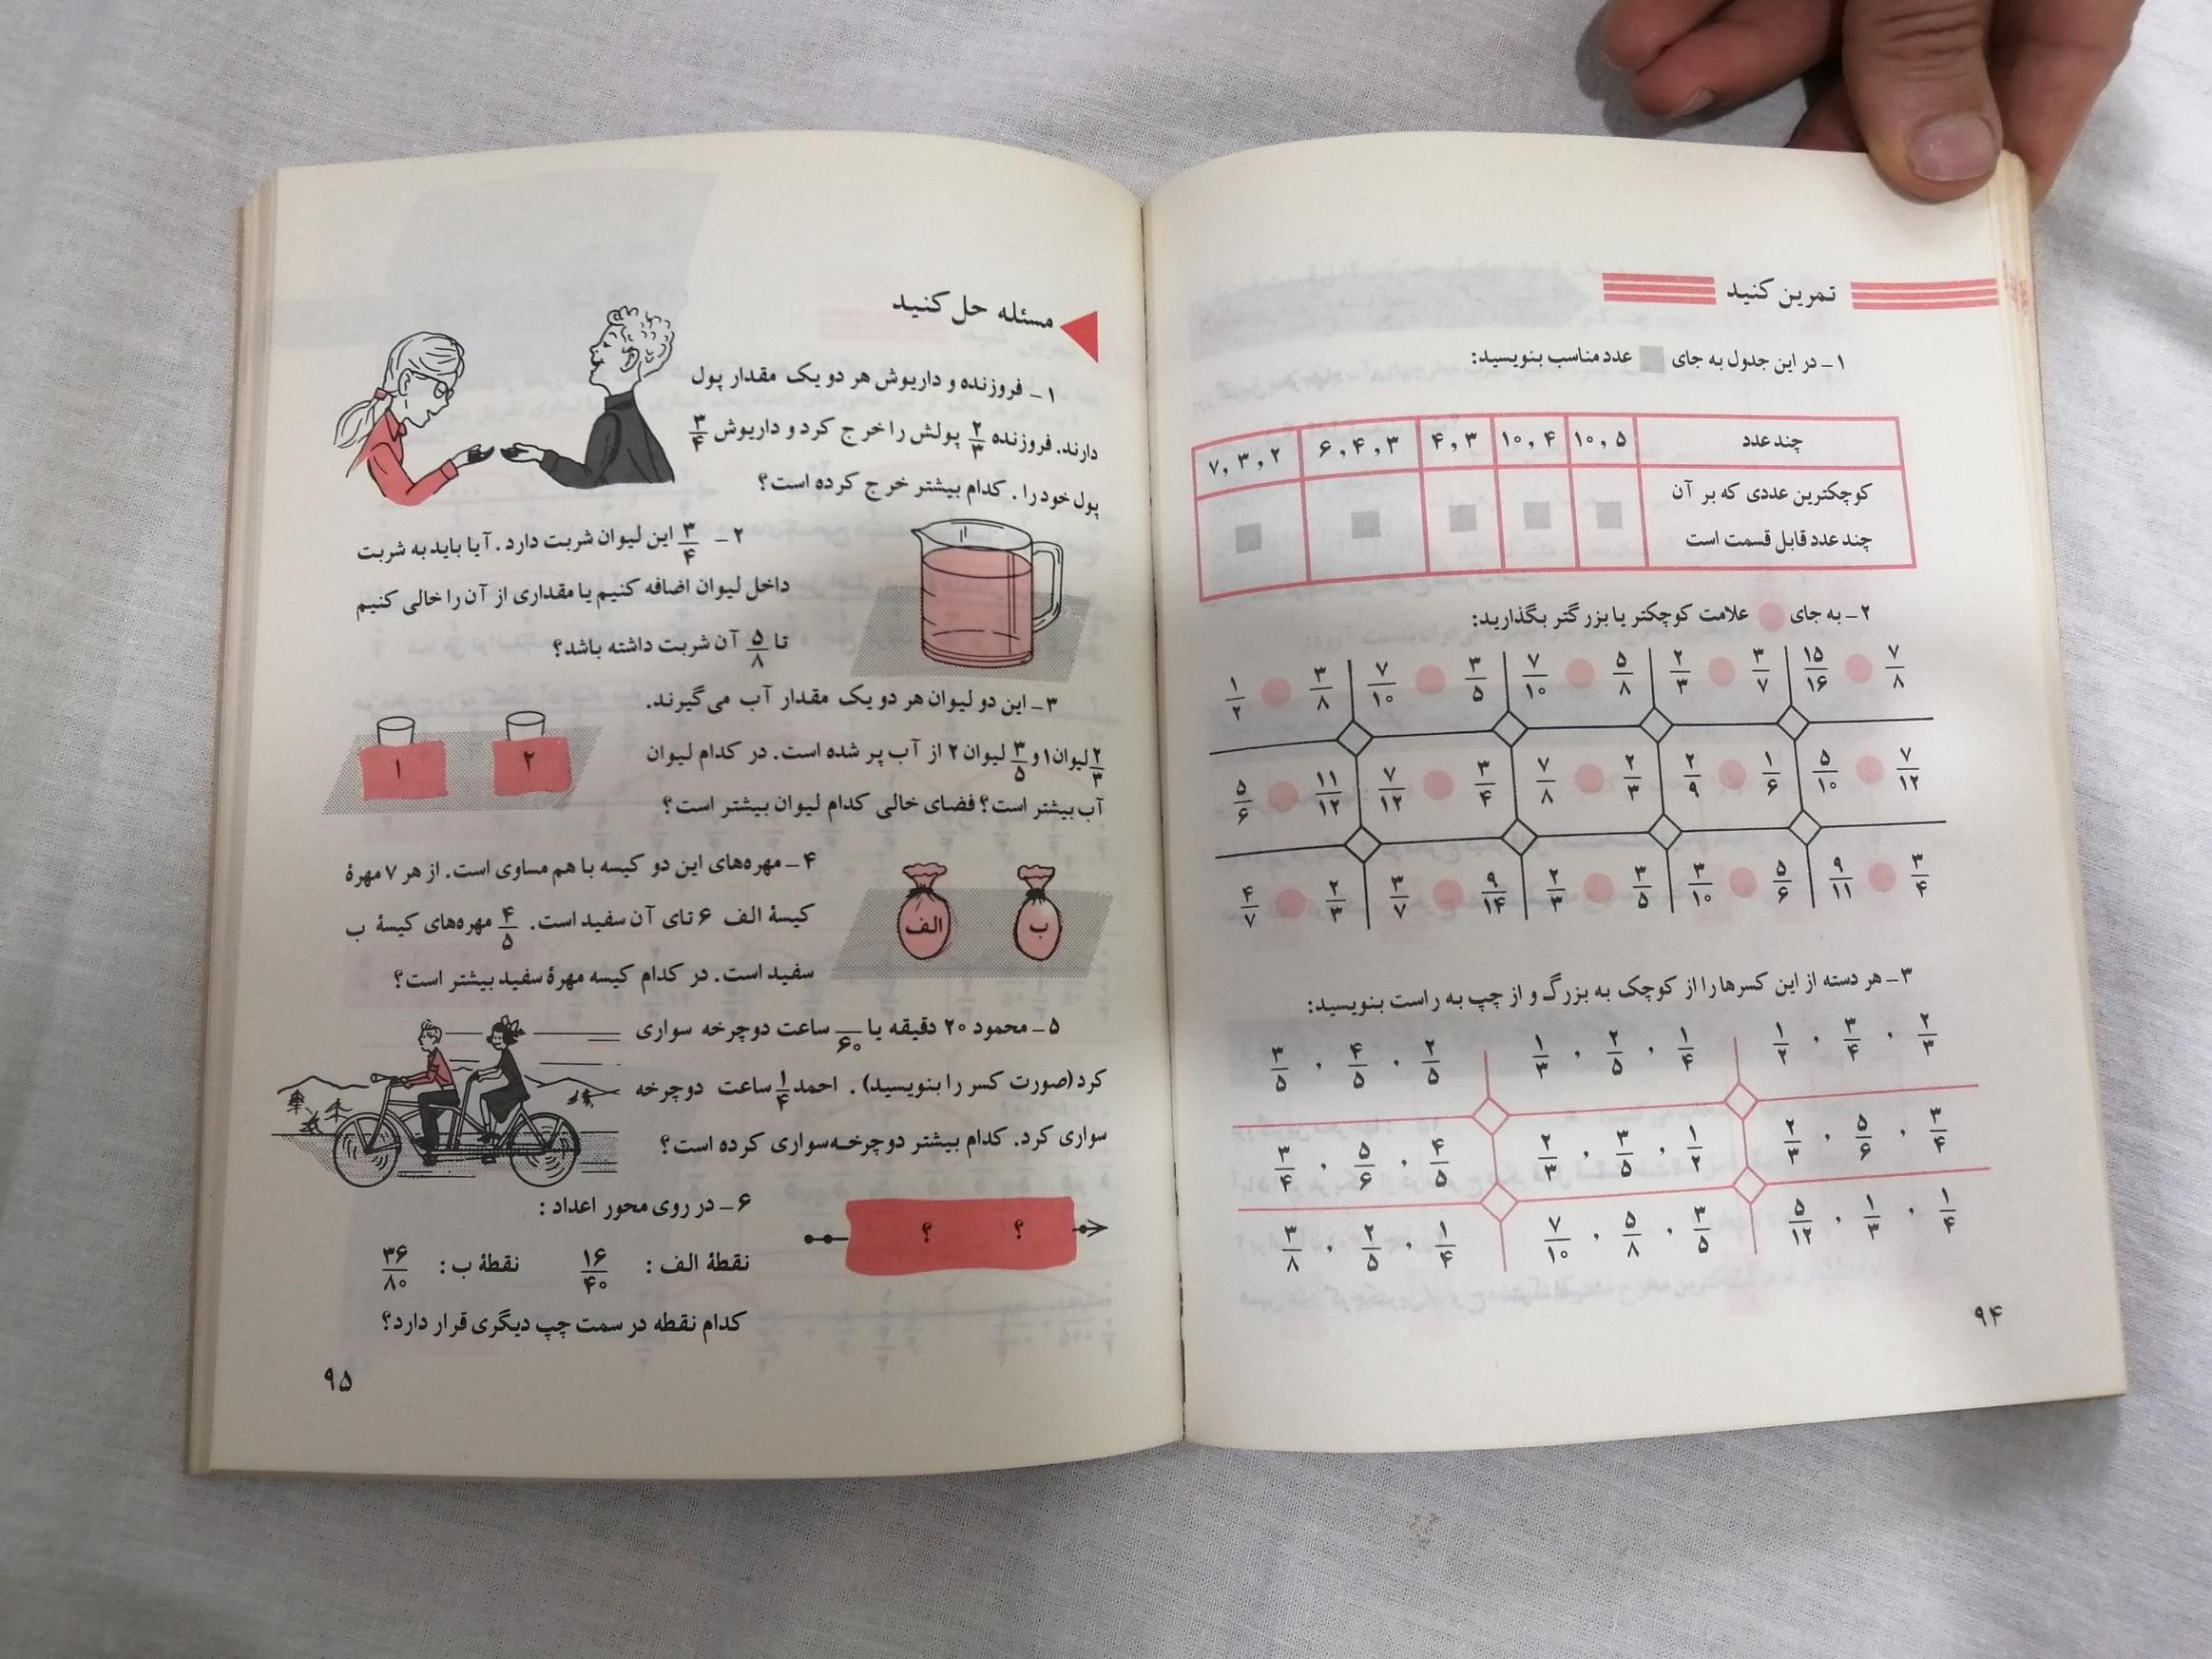 تمرین کنید
۱ـ در این جدول به جای عدد مناسب بنویسید:
چند عدد ۱۰,۵ ۱۰,۴ ۴,۳ ۶,۴,۳ ۷,۳,۲
کوچکترین عددی که بر آن
چند عدد قابل قسمت است
۲ـ به جای علامت کوچکتر یا بزرگتر بگذارید:
۱/۲ ۳/۸ ۷/۱۰ ۳/۵ ۷/۱۰ ۵/۸ ۲/۳ ۳/۷ ۱۵/۱۶ ۷/۸
۵/۶ ۱۱/۱۲ ۷/۱۲ ۳/۴ ۷/۸ ۲/۳ ۲/۹ ۱/۶ ۵/۱۰ ۷/۱۲
۴/۷ ۲/۳ ۳/۷ ۹/۱۴ ۲/۳ ۳/۵ ۳/۱۰ ۵/۶ ۹/۱۱ ۳/۴
۳ـ هر دسته از این کسرها را از کوچک به بزرگ و از چپ به راست بنویسید:
۳/۵ . ۴/۵ . ۲/۵ ۱/۳ . ۲/۵ . ۱/۴ ۱/۲ . ۳/۴ . ۲/۳
۳/۴ . ۵/۶ . ۴/۵ ۲/۳ . ۳/۵ . ۱/۲ ۲/۳ . ۵/۶ . ۳/۴
۳/۸ . ۲/۵ . ۱/۴ ۷/۱۰ . ۵/۸ . ۳/۵ ۵/۱۲ . ۱/۳ . ۱/۴
۹۴
مسئله حل کنید
۱ـ فروزنده و داریوش هر دو یک مقدار پول
دارند. فروزنده ۲/۳ پولش را خرج کرد و داریوش ۳/۴
پول خود را. کدام بیشتر خرج کرده است؟
۲ـ ۳/۴ این لیوان شربت دارد. آیا باید به شربت
داخل لیوان اضافه کنیم یا مقداری از آن را خالی کنیم
تا ۵/۸ آن شربت داشته باشد؟
۳ـ این دو لیوان هر دو یک مقدار آب می‌گیرند.
۲/۳ لیوان ۱ و ۳/۵ لیوان ۲ از آب پر شده است. در کدام لیوان
آب بیشتر است؟ فضای خالی کدام لیوان بیشتر است؟
۱ ۲
۴ـ مهره‌های این دو کیسه با هم مساوی است. از هر ۷ مهرهٔ
کیسهٔ الف ۶ تای آن سفید است. ۴/۵ مهره‌های کیسهٔ ب
سفید است. در کدام کیسه مهرهٔ سفید بیشتر است؟
الف ب
۵ـ محمود ۲۰ دقیقه یا —/۶۰ ساعت دوچرخه سواری
کرد (صورت کسر را بنویسید). احمد ۱/۴ ساعت دوچرخه
سواری کرد. کدام بیشتر دوچرخه‌سواری کرده است؟
۶ـ در روی محور اعداد:
؟ ؟
نقطهٔ الف: ۱۶/۴۰ نقطهٔ ب: ۳۶/۸۰
کدام نقطه در سمت چپ دیگری قرار دارد؟
۹۵